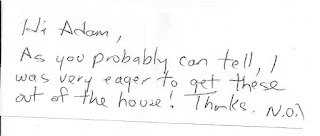 Hi Adam,
As you probably can tell, I
was very eager to get these
out of the house! Thanks. N.O.